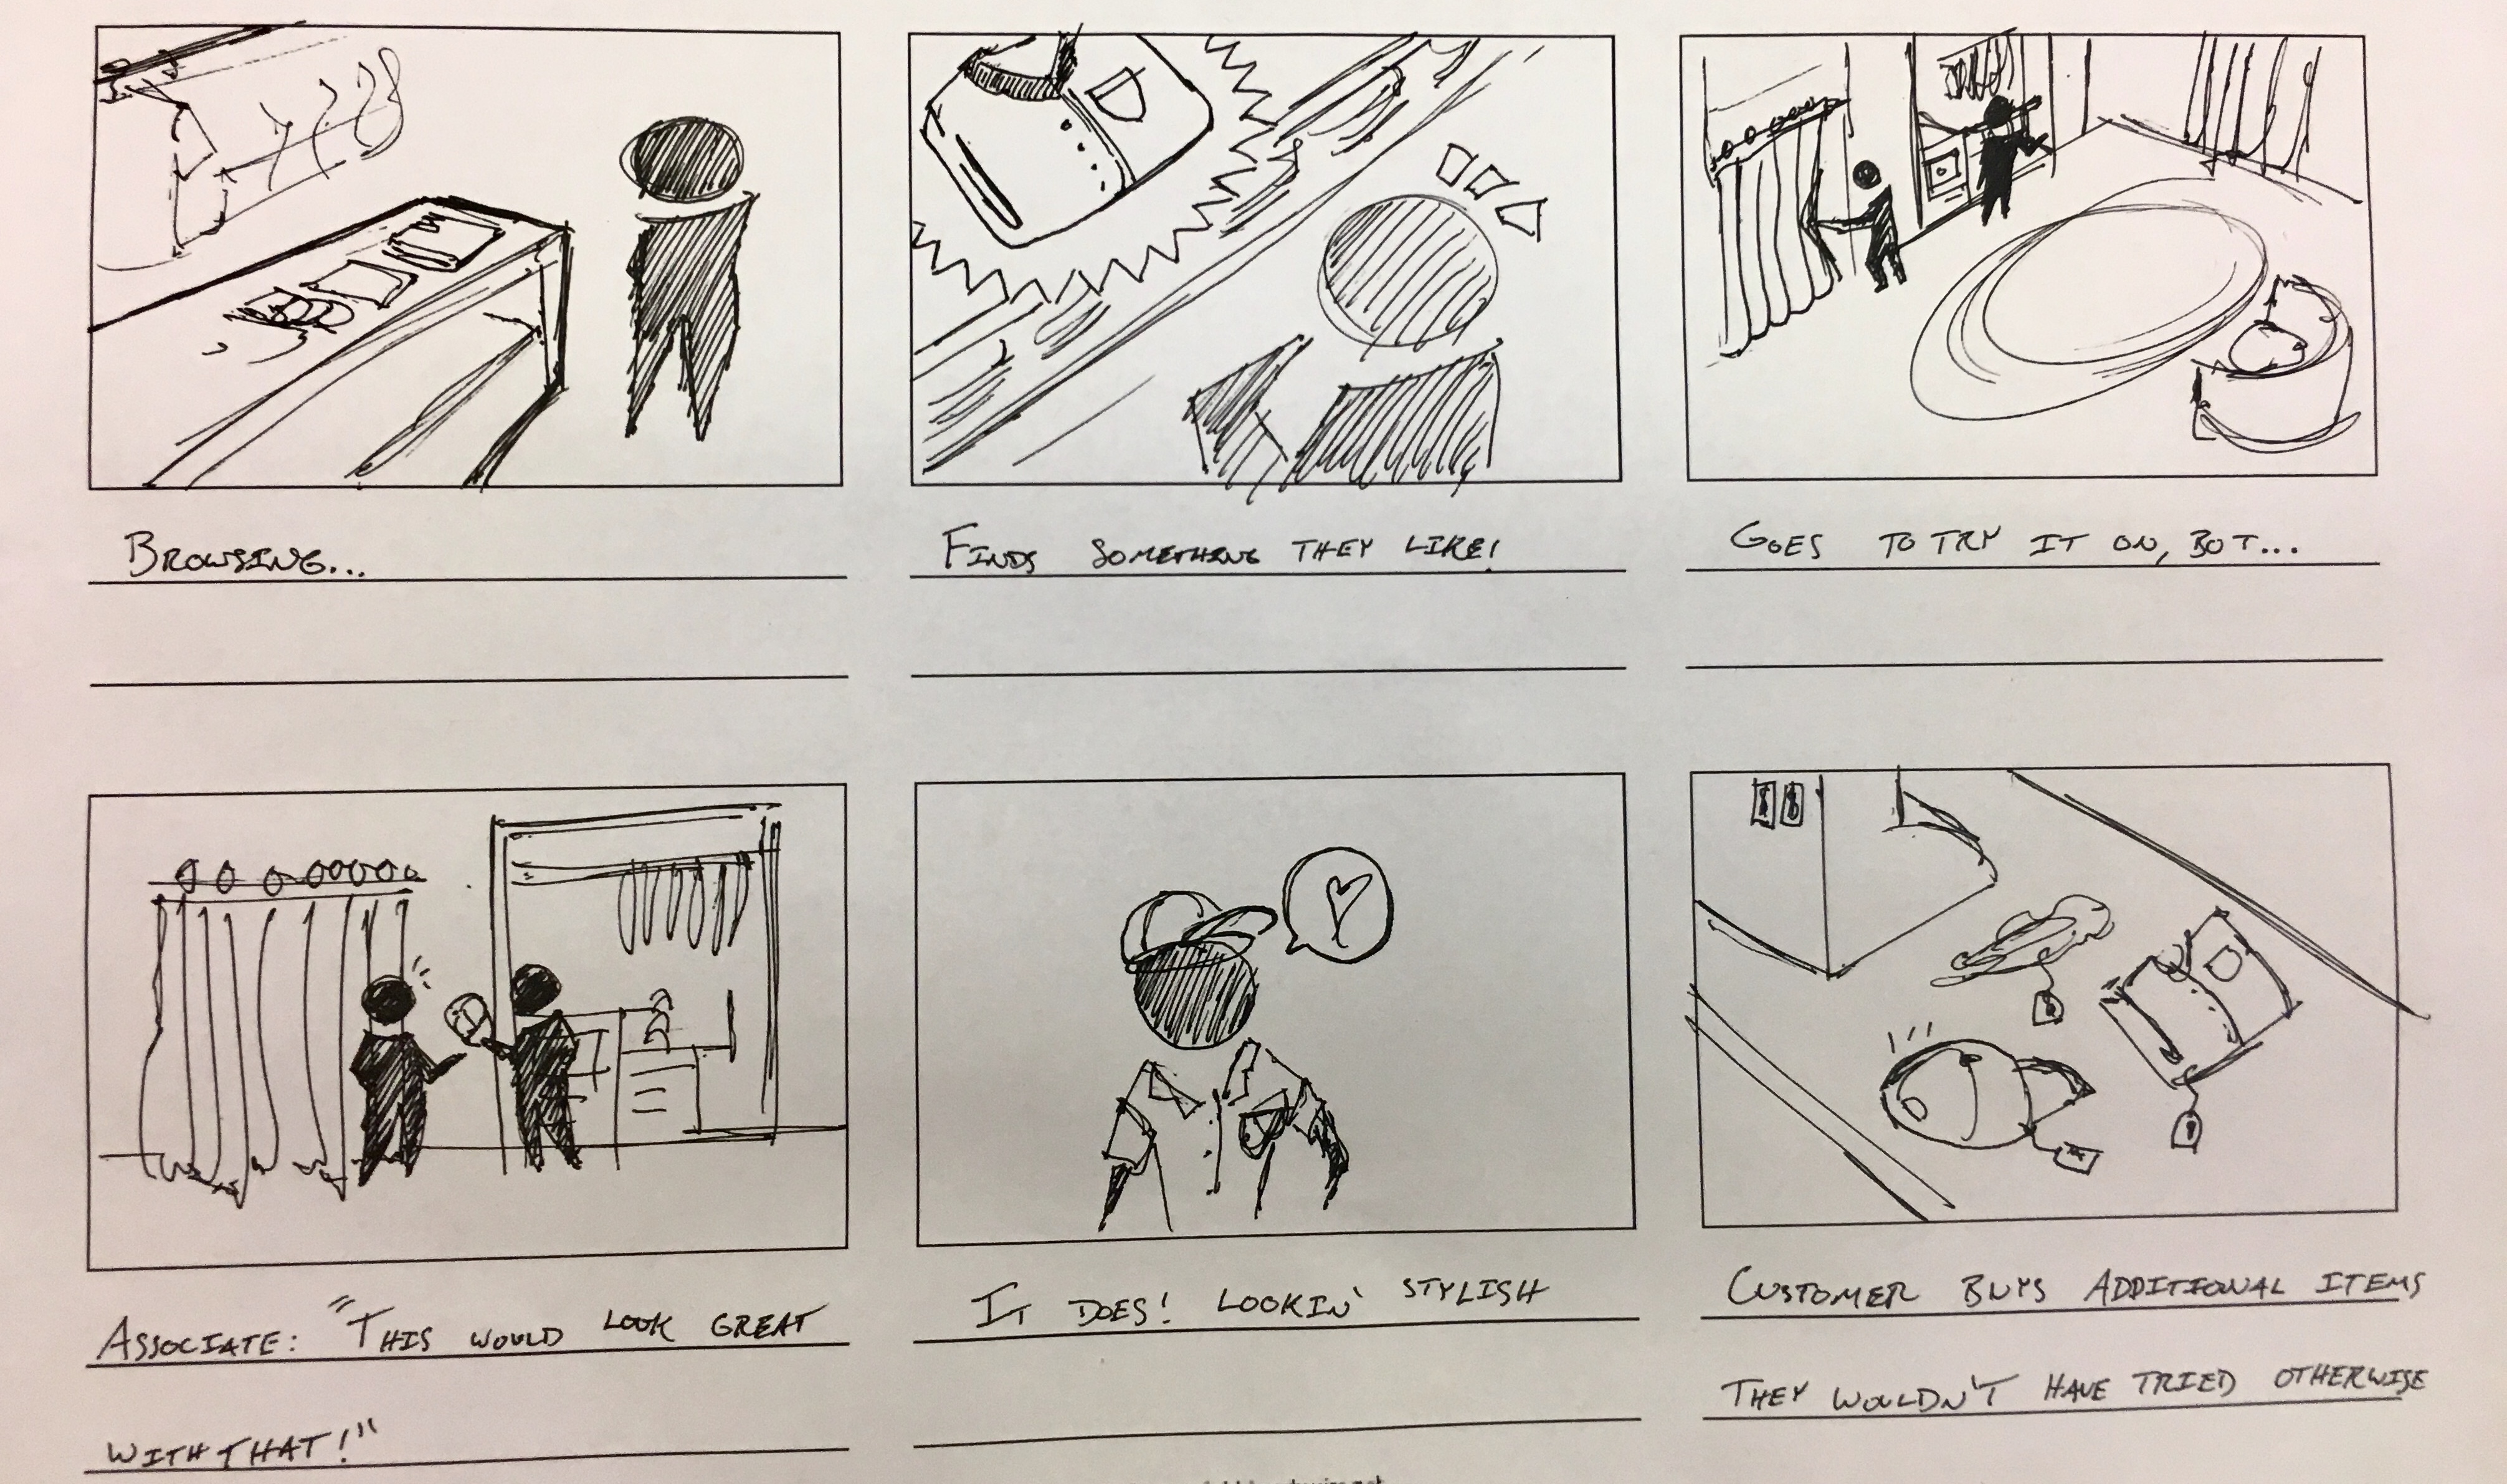 BROWSING...
FINDS SOMETHING THEY LIKE!
GOES TO TRY IT ON, BUT...
ASSOCIATE: "THIS WOULD LOOK GREAT
WITH THAT!"
IT DOES! LOOKIN' STYLISH
CUSTOMER BUYS ADDITIONAL ITEMS
THEY WOULDN'T HAVE TRIED OTHERWISE